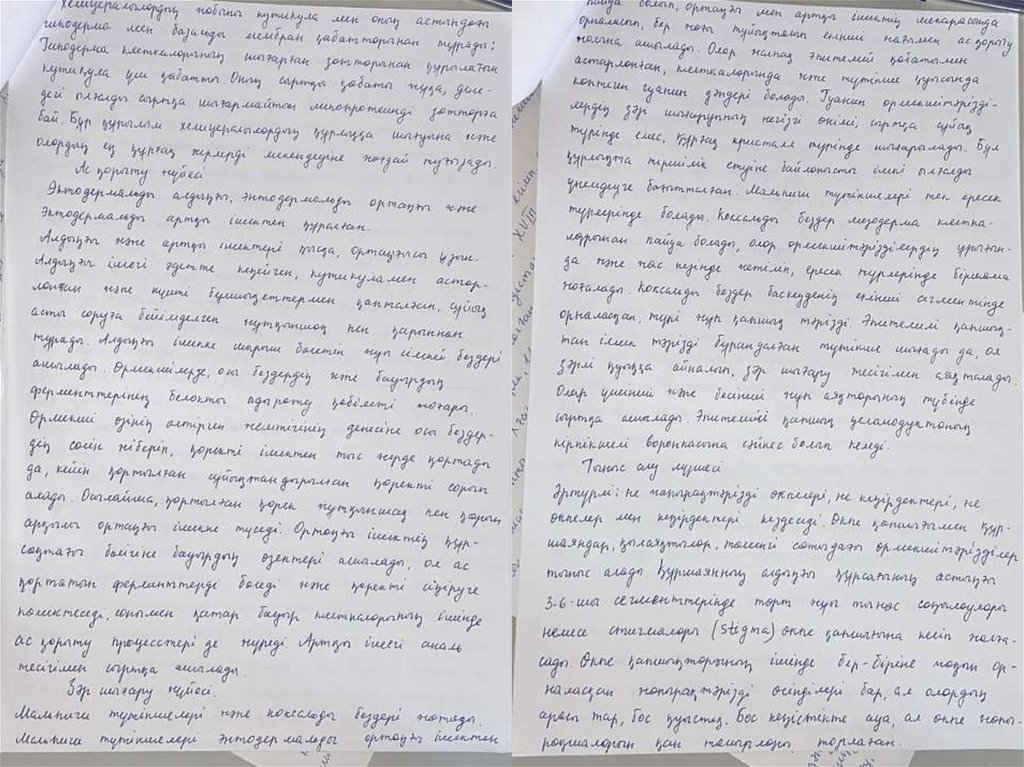 Хелицералылордың жабыны кутикула мен оның астындағы
гиподерма мен базальды мембран қабаттарынан тұрады:
Гиподерма клеткаларының шығарған заттарынан құрылатын
кутикула үш қабатты. Оның сыртқы қабаты жұқа, дене-
дегі ылғалды сыртқа шығармайтын липопротеинді заттарға
бай. Бұр құрылым хелицералылордың құрлыққа шығуына және
олордың ең құрғақ жерлерді мекендеуіне жағдай туғызады.
Ас қорыту жүйесі
Эктодермальды алдыңғы, энтодермальды ортаңғы және
эктодермальды артқы ішектен құралған.
Алдыңғы және артқы ішектері қысқа, ортаңғысы ұзын.
Алдыңғы ішегі әдетте кеңейген, кутикуламен астар-
ланған және күшті бұлшықеттермен қапталған, сұйық
асты соруға бейімделген жұтқыншақ пен қарыннан
тұрады. Алдыңғы ішекке шырыш бөлетін жұп сілекей бездері
ашылады. Өрмекшілерде, осы бездердің және бауырдың
ферменттерінің белокты ыдырату қабілеті жоғары.
Өрмекші өзінің өлтірген жемтігінің денесіне осы бездер-
дің сөлін жіберіп, қоректі ішектен тыс жерде қортады
да, кейін қортылған сұйықтандырылған қоректі сорып
алады. Осылайша, қортылған қорек жұтқыншақ пен қарын
арқылы ортаңғы ішекке түседі. Ортаңғы ішектің құр-
сақтағы бөлігіне бауырдың өзектері ашылады, ол ас
қортатын ферменттерді бөледі және қоректі сіңіруге
көмектеседі, сонымен қатар бауыр клеткаларының ішінде
ас қорыту процесстері де жүреді. Артқы ішегі аналь
тесігімен сыртқа ашылады.
Зәр шығару жүйесі.
Мальпиги түтікшелері және коксальды бездері жатады.
Мальпиги түтікшелері энтодермальды ортаңғы ішектен
пайда болып, ортаңғы мен артқы ішектің шекарасында
орналасып, бер жағы тұйықталып екінші жағымен ас қорыту
жолына ашылады. Олар жалпақ эпителий қабатымен
астарланған, клеткаларында және түтікше қуысында
көптеген гуанин дәндері болады. Гуанин өрмекшітәрізді-
лердің зәр шығаруының негізгі өнімі, сыртқа сұйық
түрінде емес, құрғақ кристалл түрінде шығарылады. Бұл
құрлықта тіршілік етуіне байланысты ішкі ылғалды
үнемдеуге бағытталған. Мальпиги түтікшелері тек ересек
түрлерінде болады. Коксальды бездер мезодерма клетка-
лорынан пайда болады, олор өрмекшітәрізділердің ұрығын-
да және жас кезінде жетіліп, ересек түрлерінде біршама
жоғалады. Коксалды бездер баскеуденің екінші сегментінде
орналасқан, түрі жұп қапшық тәрізді. Эпителилі қапшық-
тан ілмек тәрізді бұрандалған түтікше шығады да, ол
зәрлі қуыққа айналып, зәр шығару тесігімен аяқталады.
Олар үшінші және бесінші жұп аяқтарының түбінде
сыртқа ашылады. Эпителилі қапшық целомодуктоның
кірпікшелі воронкасына сәйкес болып келеді.
Тыныс алу мүшесі
Әртүрлі: не жапырақтәрізді өкпелері, не кеңірдектері, не
өкпелер мен кеңірдектері кездеседі. Өкпе қапшығымен құр-
шаяндар, қылаяқтылар, төменгі сатыдағы өрмекшітәрізділер
тыныс алады. Құршаянның алдыңғы құрсағының астыңғы
3-6-шы сегменттерінде төрт жұп тыныс саңылаулары
немесе стигмалары (stigma) өкпе қапшығына келіп жалға-
сады. Өкпе қапшықтарының ішінде бер-біріне жақын ор-
наласқан жапырақтәрізді өсінділері бар, ал олардың
арасы тар, бос қуыстық. Бос кеңістікте ауа, ал өкпе жапы-
рақшаларын қан тамырлары торлаған.